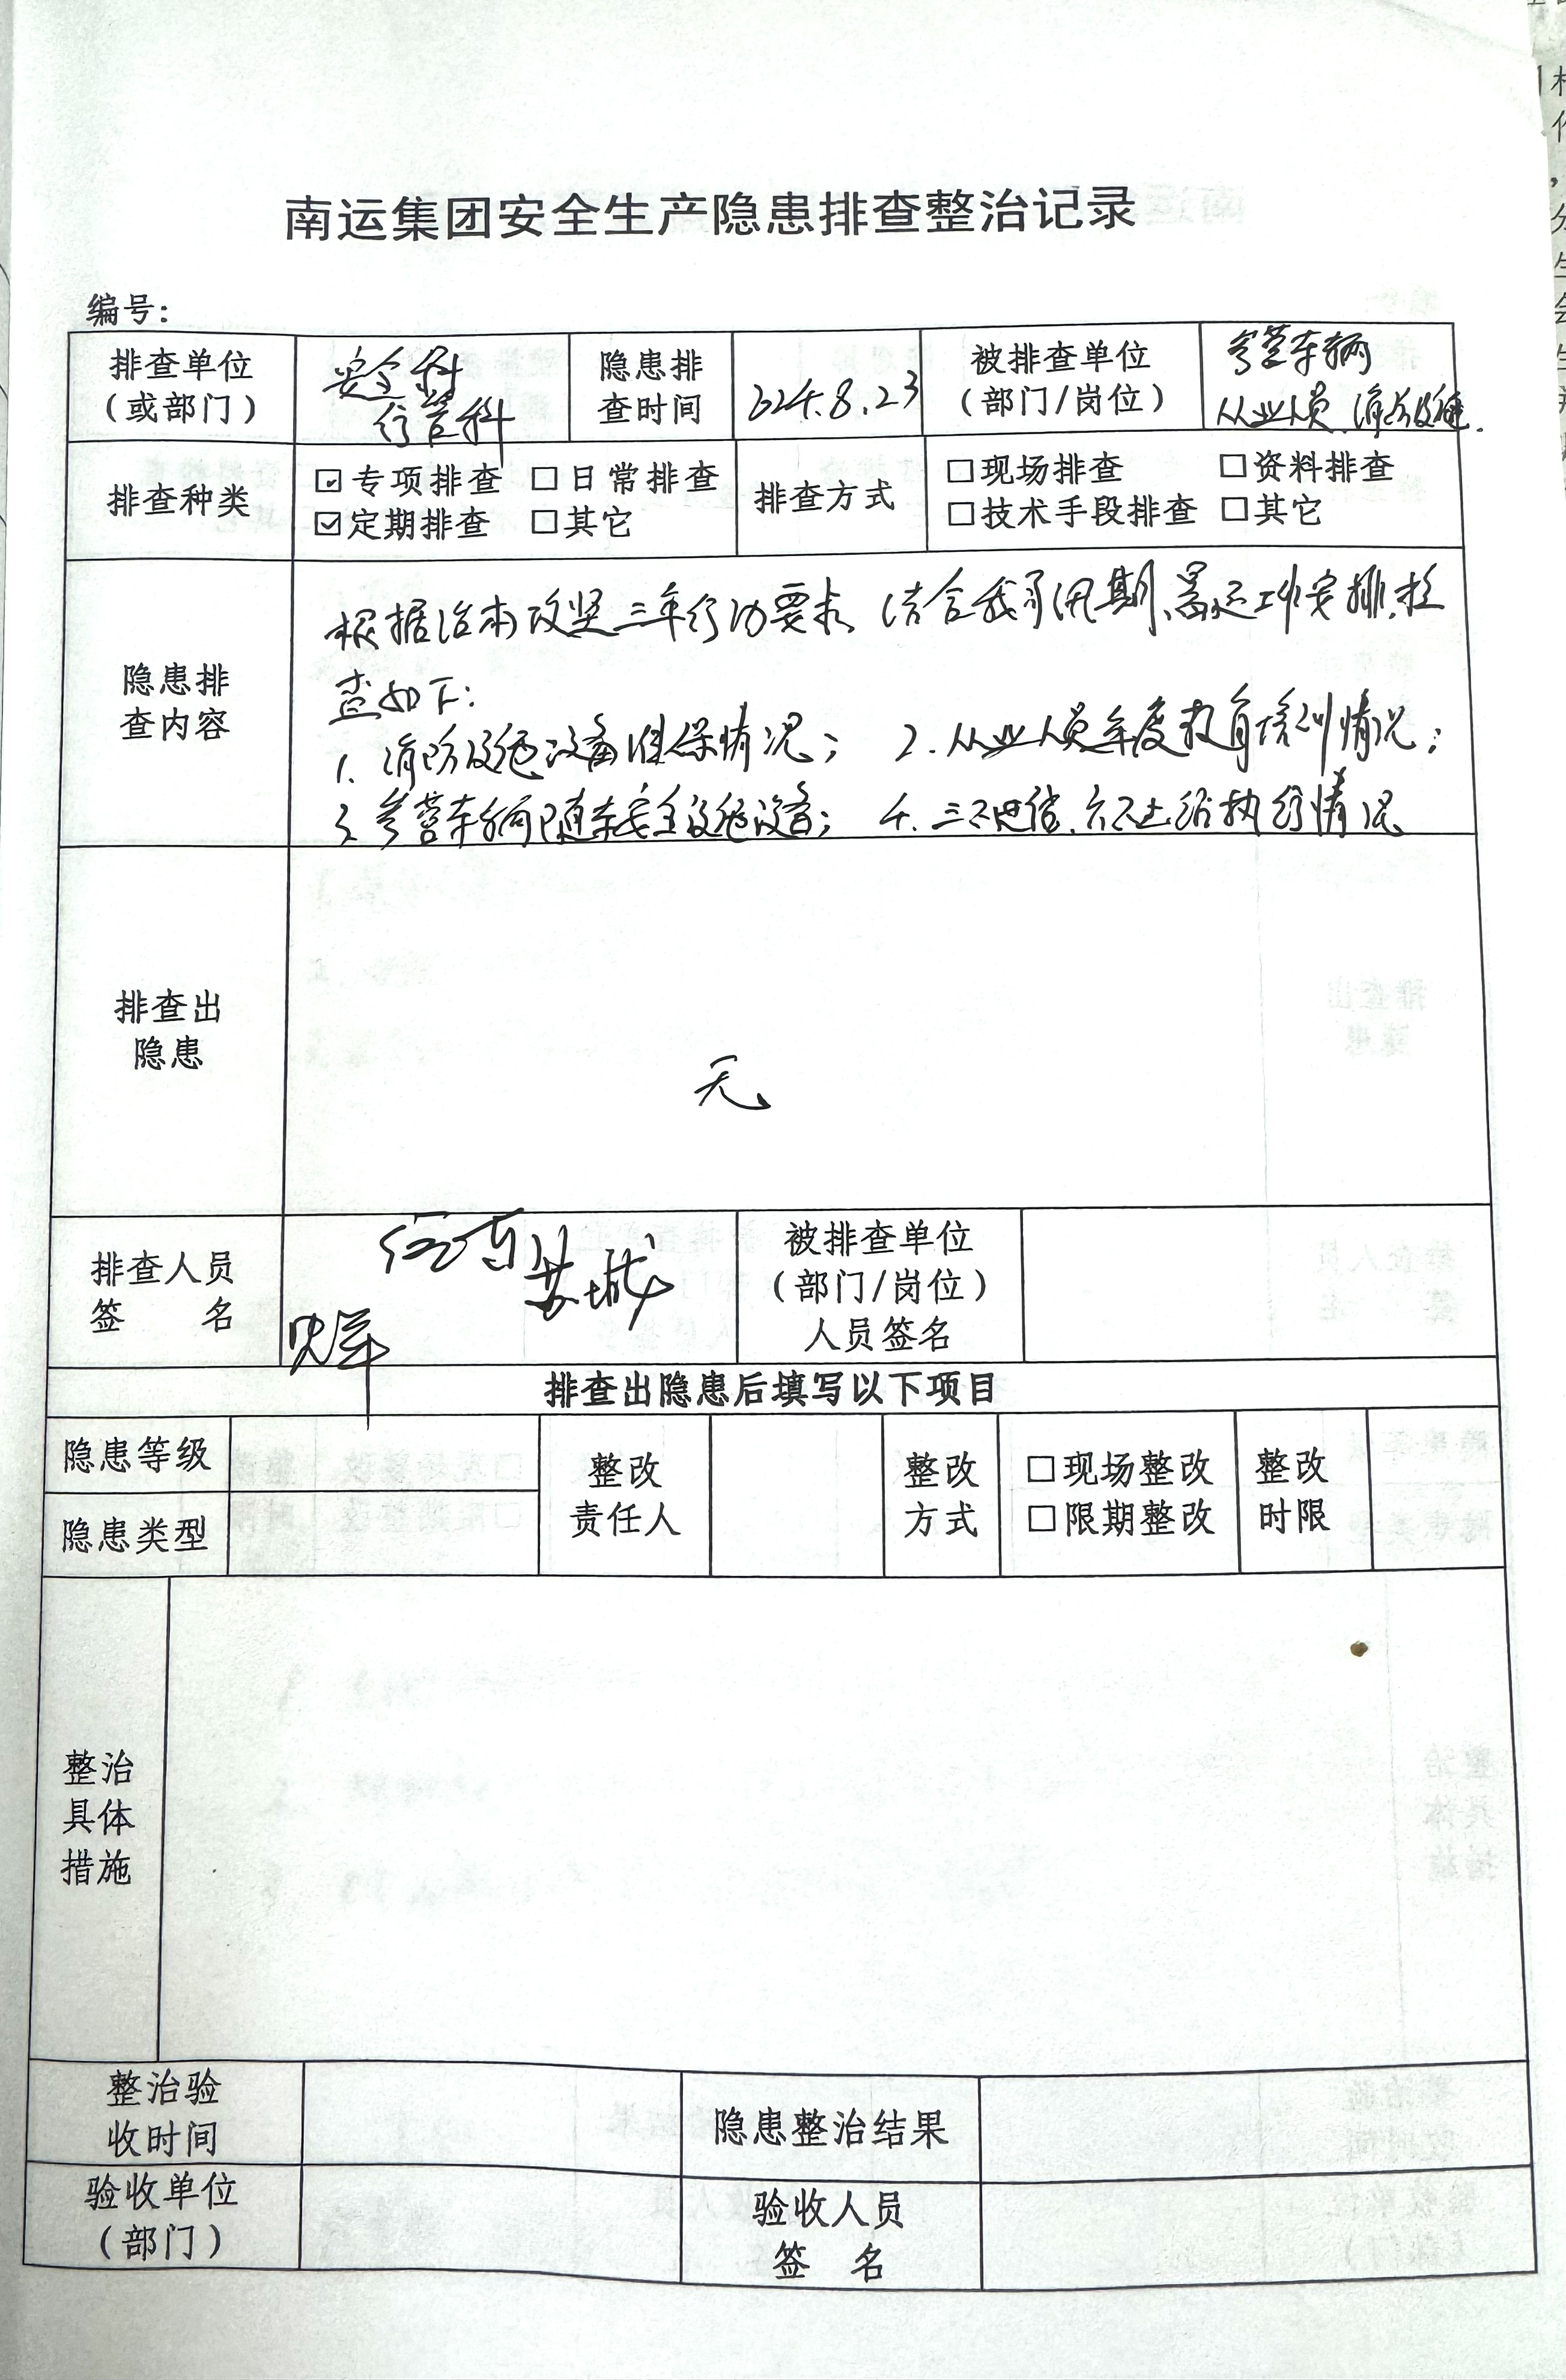 南运集团安全生产隐患排查整治记录
编号：
排查单位
（或部门）
安全科
行管科
隐患排
查时间
2024.8.23
被排查单位
（部门/岗位）
参营车辆
从业人员、消防设施
排查种类
☑专项排查 □日常排查
☑定期排查 □其它
排查方式
□现场排查 □资料排查
□技术手段排查 □其它
隐患排
查内容
根据治本攻坚三年行动要求 结合我司汛期、暑运工作安排，检
查如下：
1. 消防设施设备维保情况； 2. 从业人员年度教育培训情况；
3. 参营车辆随车安全设施设备； 4. 三不进站、六不出站执行情况
排查出
隐患
无
排查人员
签 名
被排查单位
（部门/岗位）
人员签名
排查出隐患后填写以下项目
隐患等级
隐患类型
整改
责任人
整改
方式
□现场整改
□限期整改
整改
时限
整治
具体
措施
整治验
收时间
隐患整治结果
验收单位
（部门）
验收人员
签 名